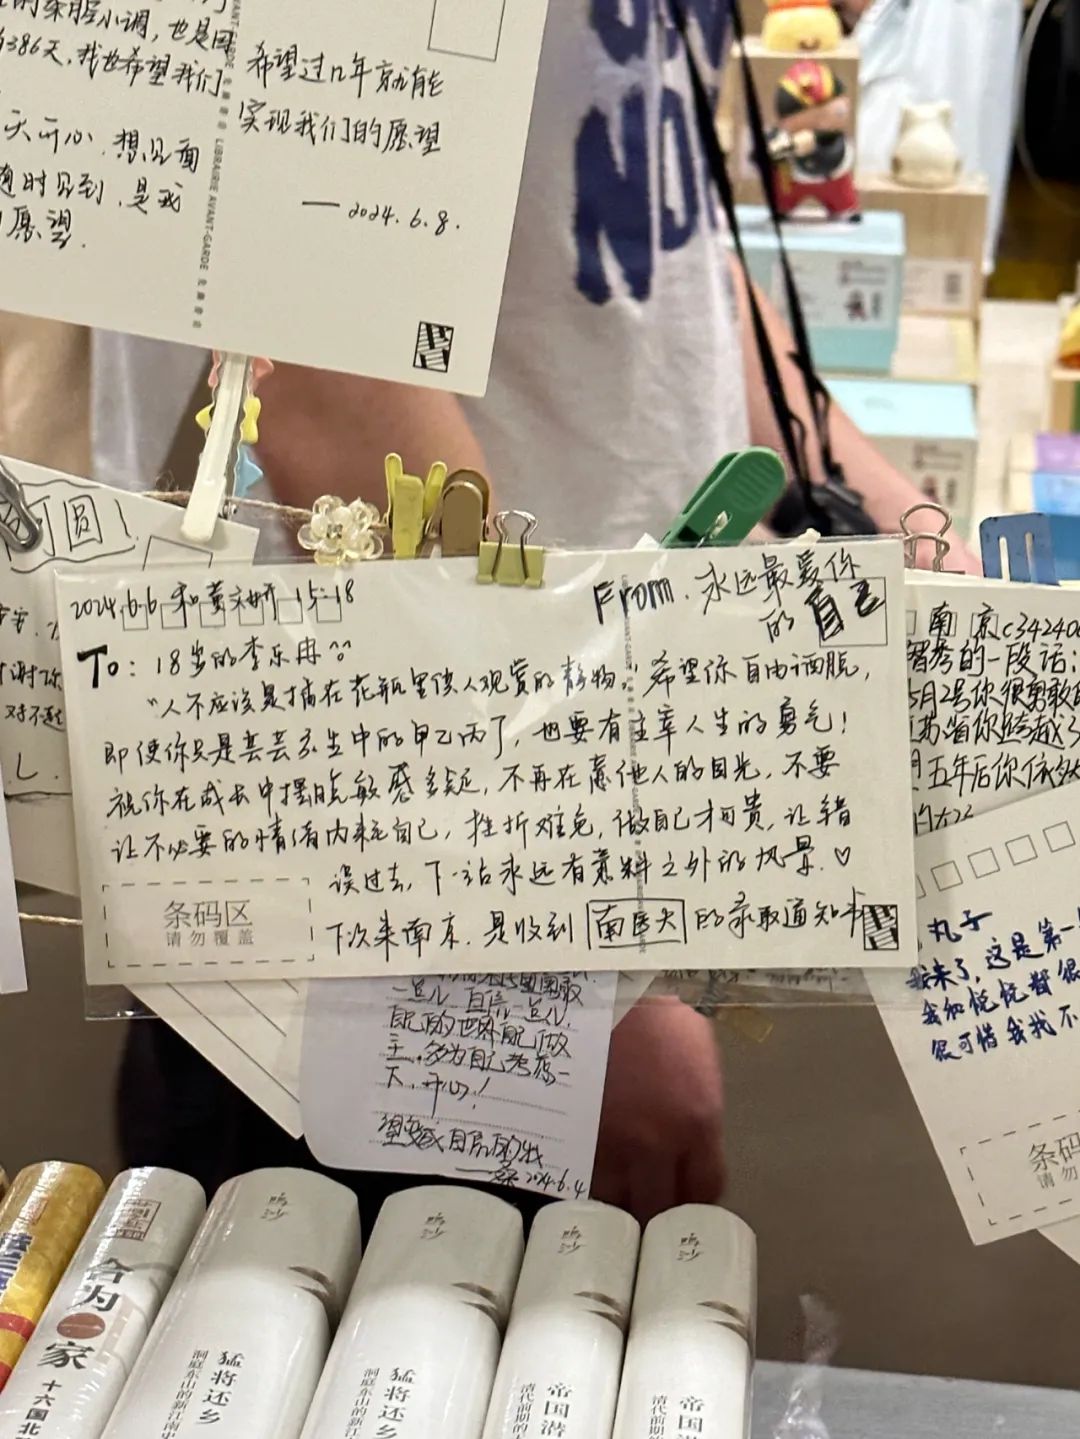 小调，也是因
386天，我也希望我们
天开心，想见面
随时见到，是我
愿望.
希望过几年就能
实现我们的愿望
— 2024.6.8.
LIBRAIRIE AVANT-GARDE
圆！
2024.6.6 和黄文妍 15:18
From. 永远最爱你
的自己
To: 18岁的李乐冉
“人不应该是插在花瓶里供人观赏的静物。”希望你自由洒脱，
即使你只是芸芸众生中的甲乙丙丁，也要有主宰人生的勇气！
祝你在成长中摆脱敏感多疑，不再在意他人的目光，不要
让不必要的情绪内耗自己，挫折难免，做自己才可贵，让错
误过去，下一站永远有意料之外的风景.♡
下次来南京，是收到 南医大 的录取通知书
条码区
请勿覆盖
南京
的一段话：
5月2号你很勇敢
省你跨越了
五年后你依
自己的世界自己做
主，多为自己考虑一
下，开心！
2024.6.4
丸子
我来了，这是第一
我和悦悦都很
很可惜我找不
条码
请勿
合为一家
十六国北
鸣沙
猛将还乡
洞庭东山的新江南史
鸣沙
猛将还乡
洞庭东山的新江
鸣沙
帝国潜
清代前期的
鸣沙
帝国潜
清代前期